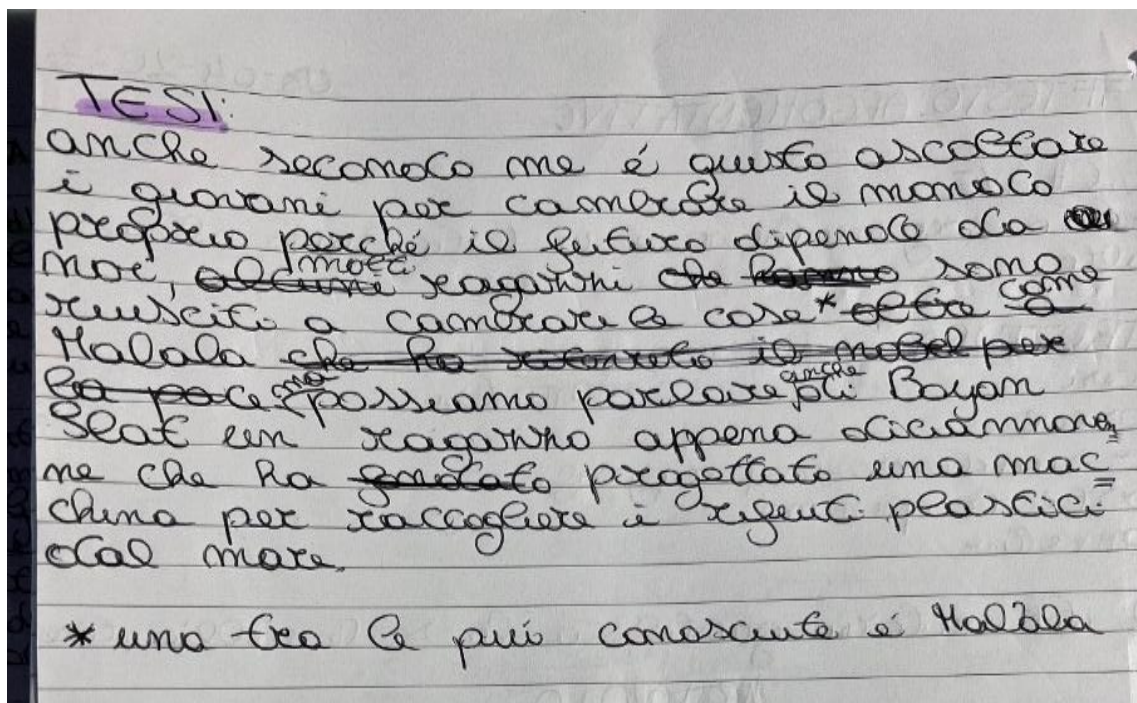 TESI:
anche secondo me é giusto ascoltare
i giovani per cambiare il mondo
proprio perché il futuro dipende da
noi, molti ragazzi sono
riusciti a cambiare le cose * come
Malala
ma possiamo parlare anche di Boyan
Slat un ragazzo appena diciannove=
ne che ha progettato una mac=
china per raccogliere i rifiuti plastici
dal mare.
* una tra le piú conosciute é Malala